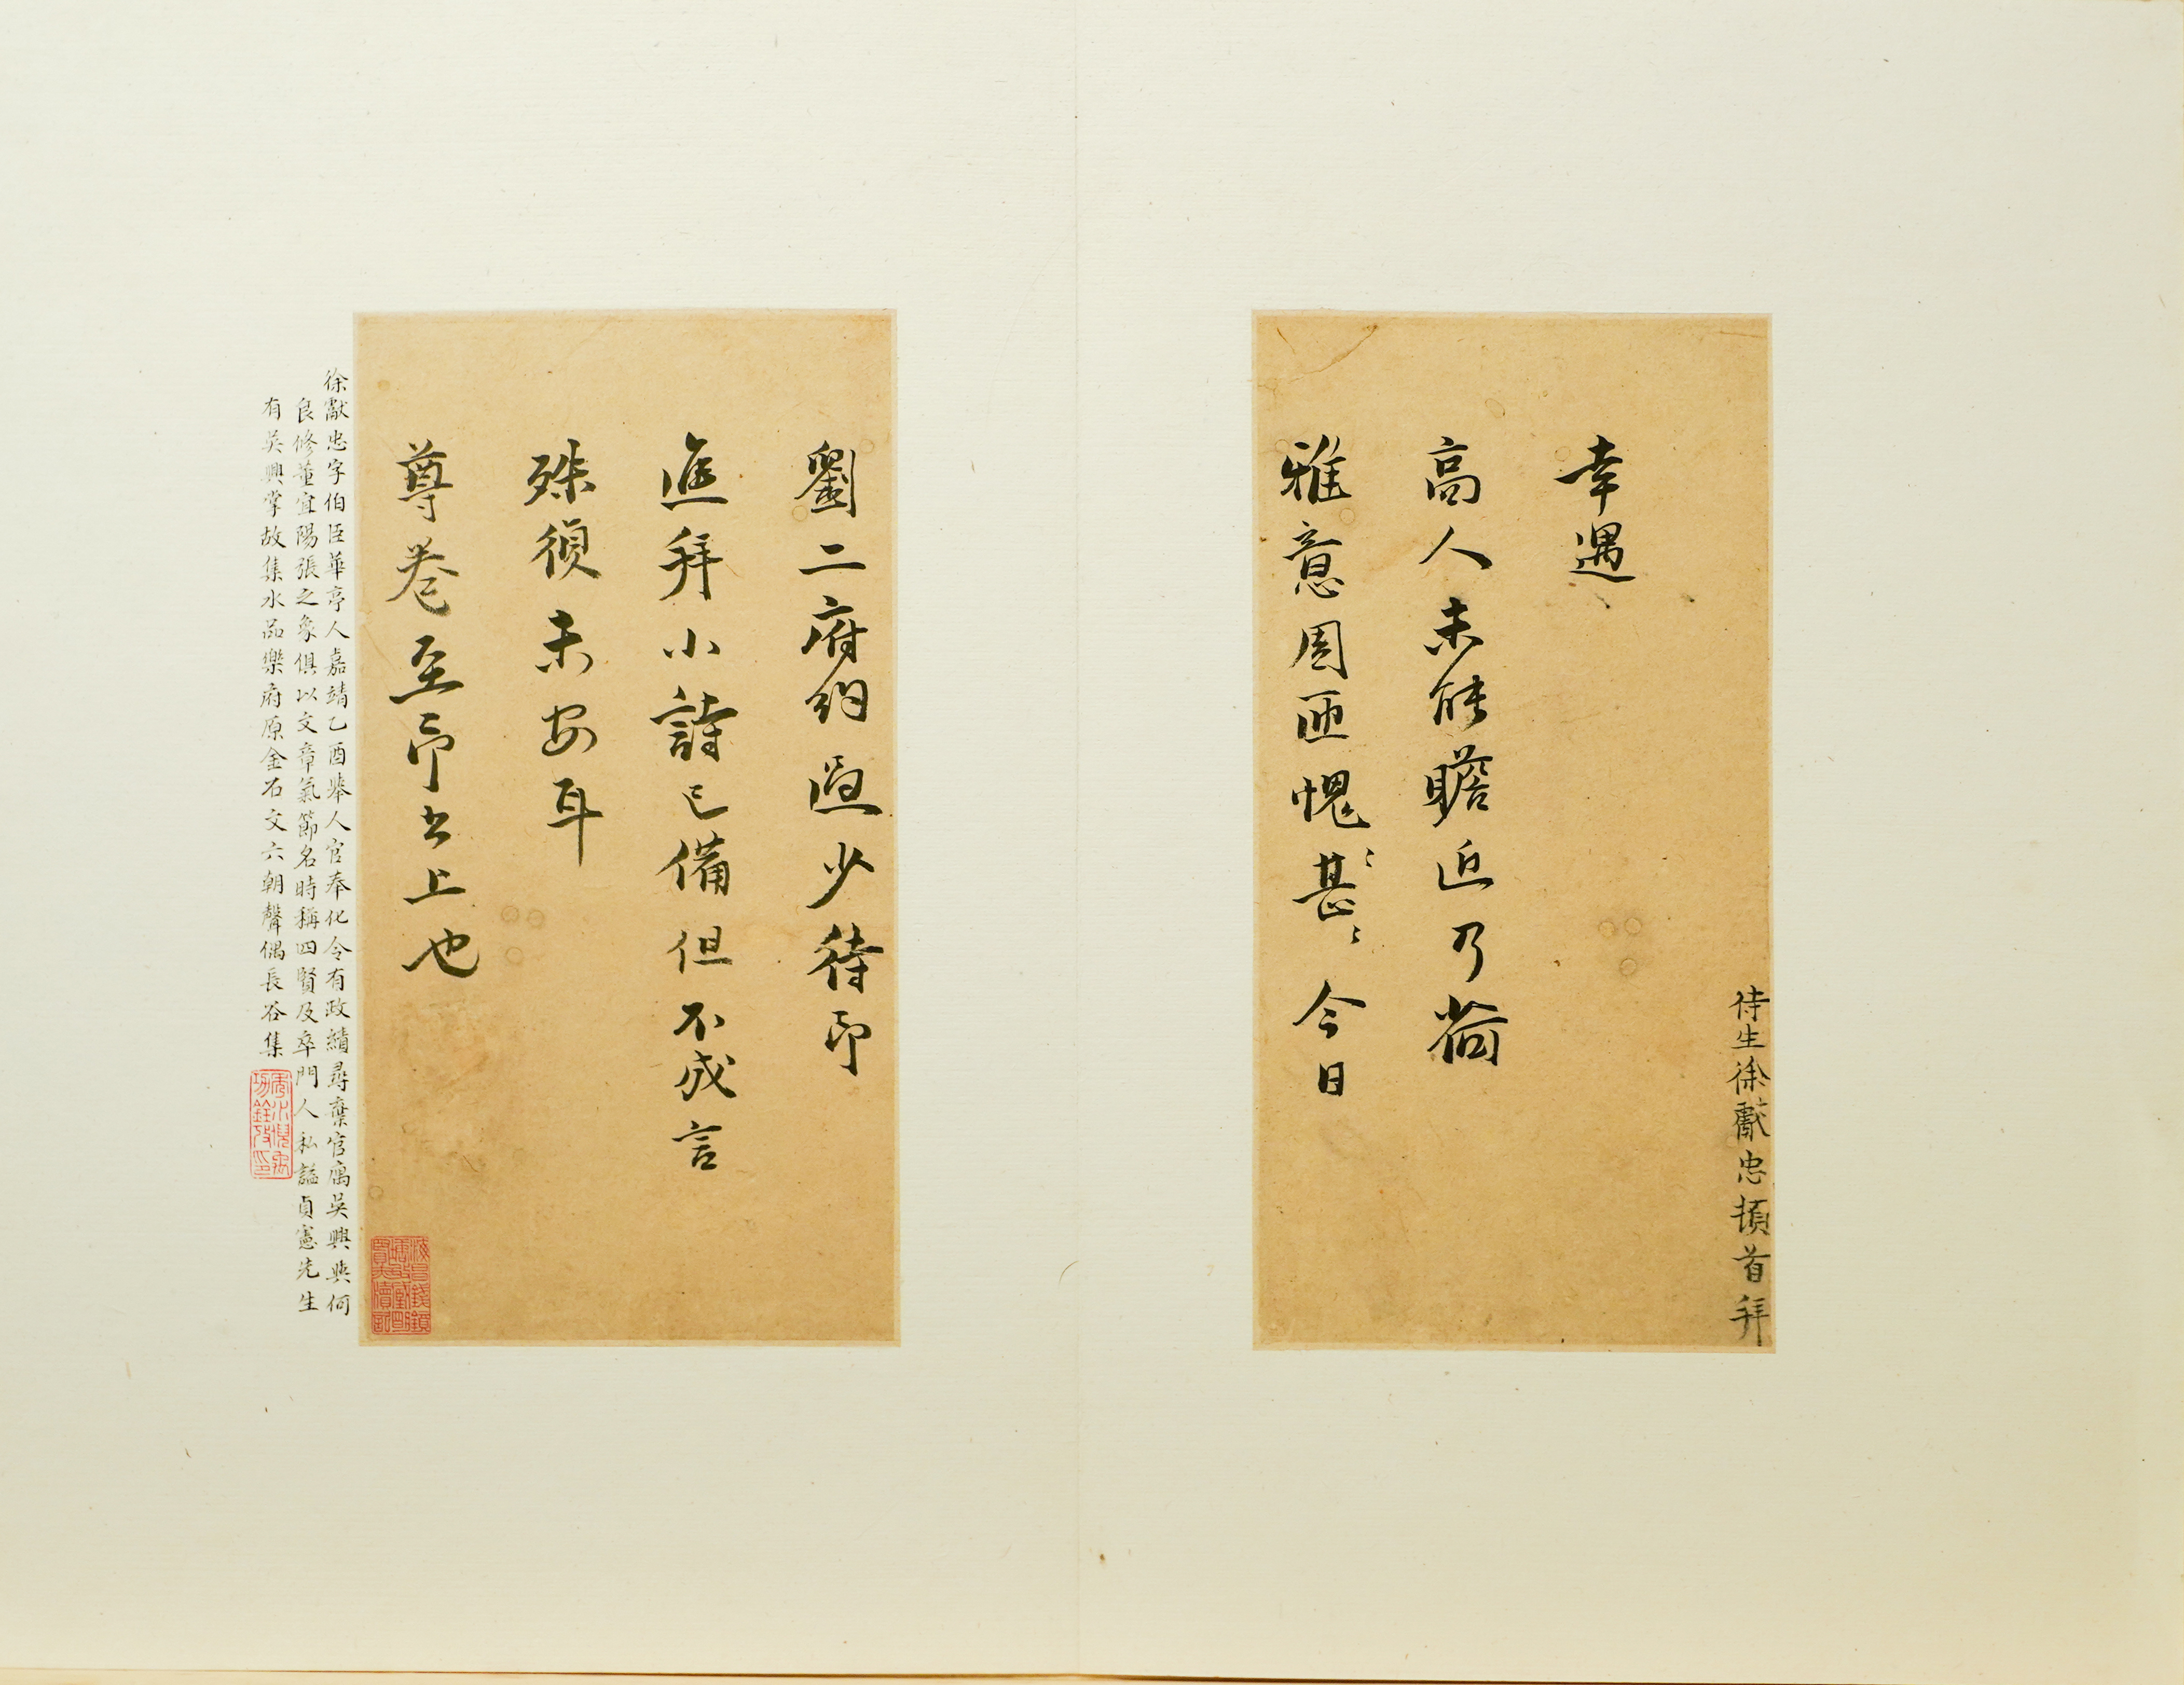 侍生徐獻忠頓首拜
幸遇
高人未能瞻近乃荷
雅意周匝愧〻甚〻今日
劉二府約過少待即
進拜小詩已備但不成言
殊須未安耳
尊卷至即書上也
徐獻忠字伯臣華亭人嘉靖乙酉舉人官奉化令有政績尋棄官寓吳興與何
良修董宜陽張之象俱以文章氣節名時稱四賢及卒門人私諡貞憲先生
有吳興掌故集水品樂府原金石文六朝聲偶長谷集